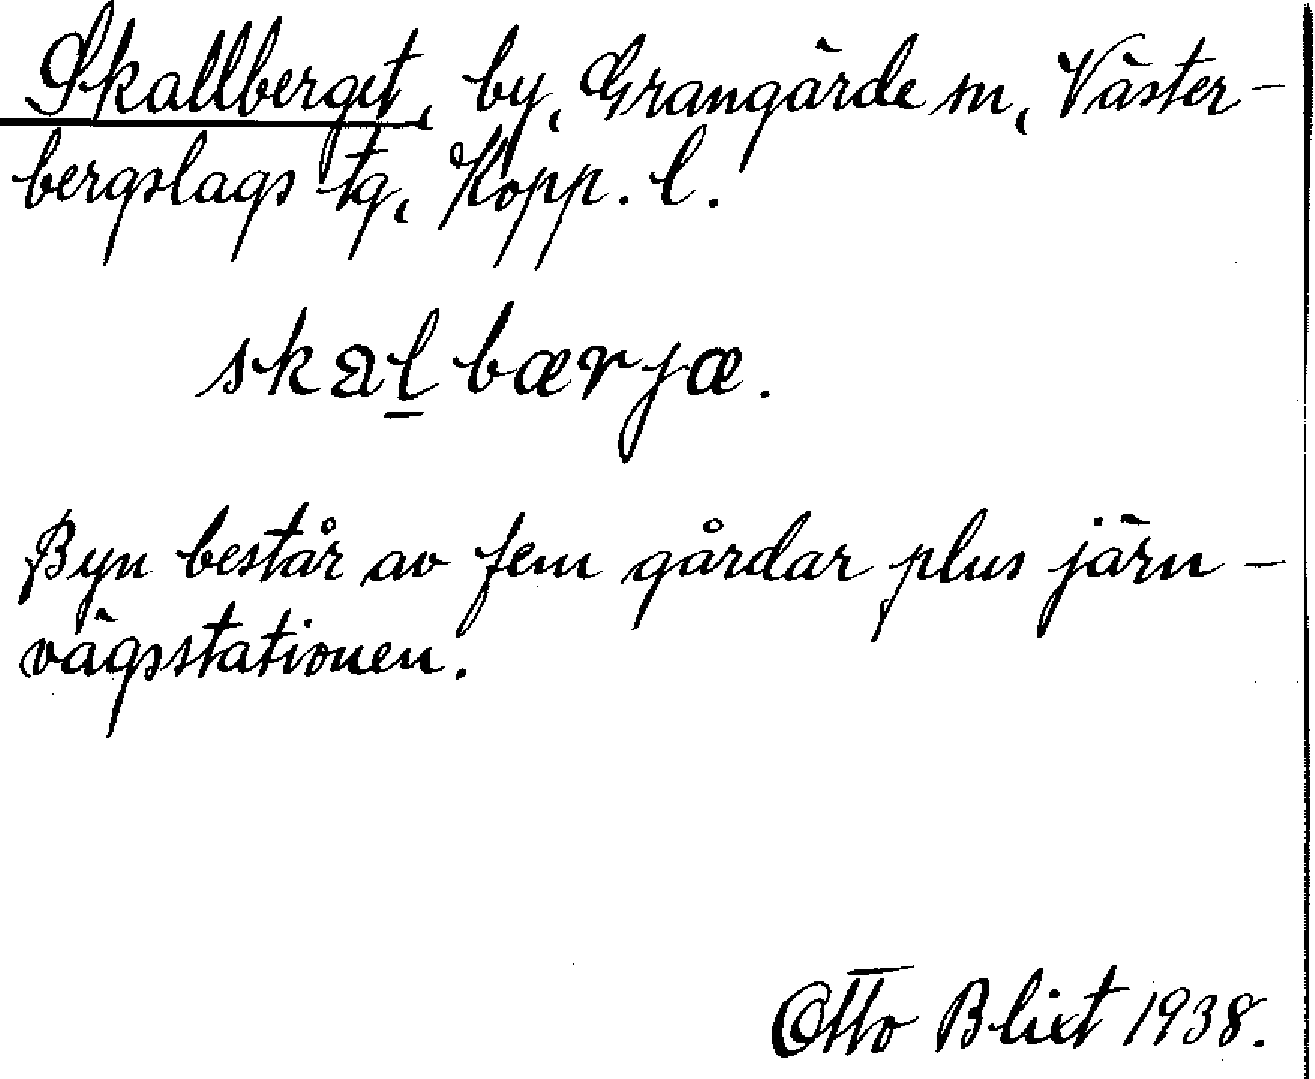 Skallberget, by, Grangärde sn, Väster-
bergslags tg, Kopp. l.
skal̠bærjæ.
Byn består av fem gårdar plus järn-
vägsstationen.
Otto Blixt 1938.